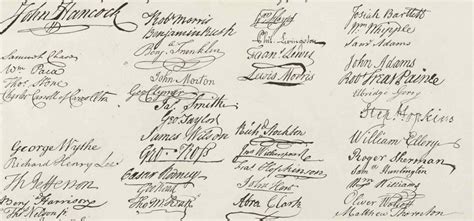 John Hancock
Samuel Chase
Wm Paca
Thos Stone
Charles Carroll of Carrollton
George Wythe
Richard Henry Lee
Th Jefferson
Benj Harrison
Thos Nelson jr
Robt Morris
Benjamin Rush
Benj Franklin
John Morton
Geo Clymer
Jas Smith
Geo Taylor
James Wilson
Geo Ross
Caesar Rodney
Geo Read
Tho M:Kean
Phil. Livingston
Lewis Morris
Richd Stockton
Jno Witherspoon
Fras Hopkinson
John Hart
Abra Clark
Josiah Bartlett
Wm Whipple
Saml Adams
John Adams
Robt Treat Paine
Elbridge Gerry
Step Hopkins
William Ellery
Roger Sherman
Sam Huntington
Wm Williams
Oliver Wolcott
Matthew Thornton